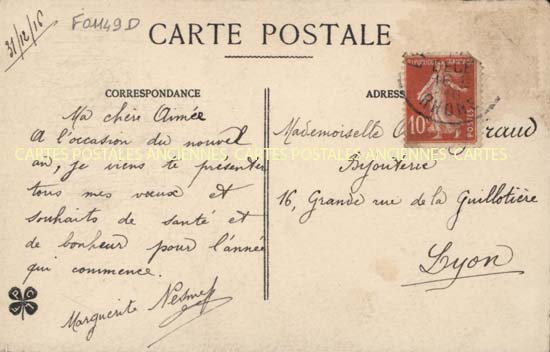 31/12/16
FO1149D
CARTE POSTALE
CORRESPONDANCE
Ma chère Aimée
A l'occasion du nouvel
an, je viens te présenter
tous mes vœux et
souhaits de santé et
de bonheur pour l'année
qui commence.
Marguerite
ADRES
10
POSTES
RHONE
Mademoiselle
Bijouterie
16, Grande rue de la Guillotière
Lyon
CARTES POSTALES ANCIENNES CARTES POSTALES ANCIENNES CARTES